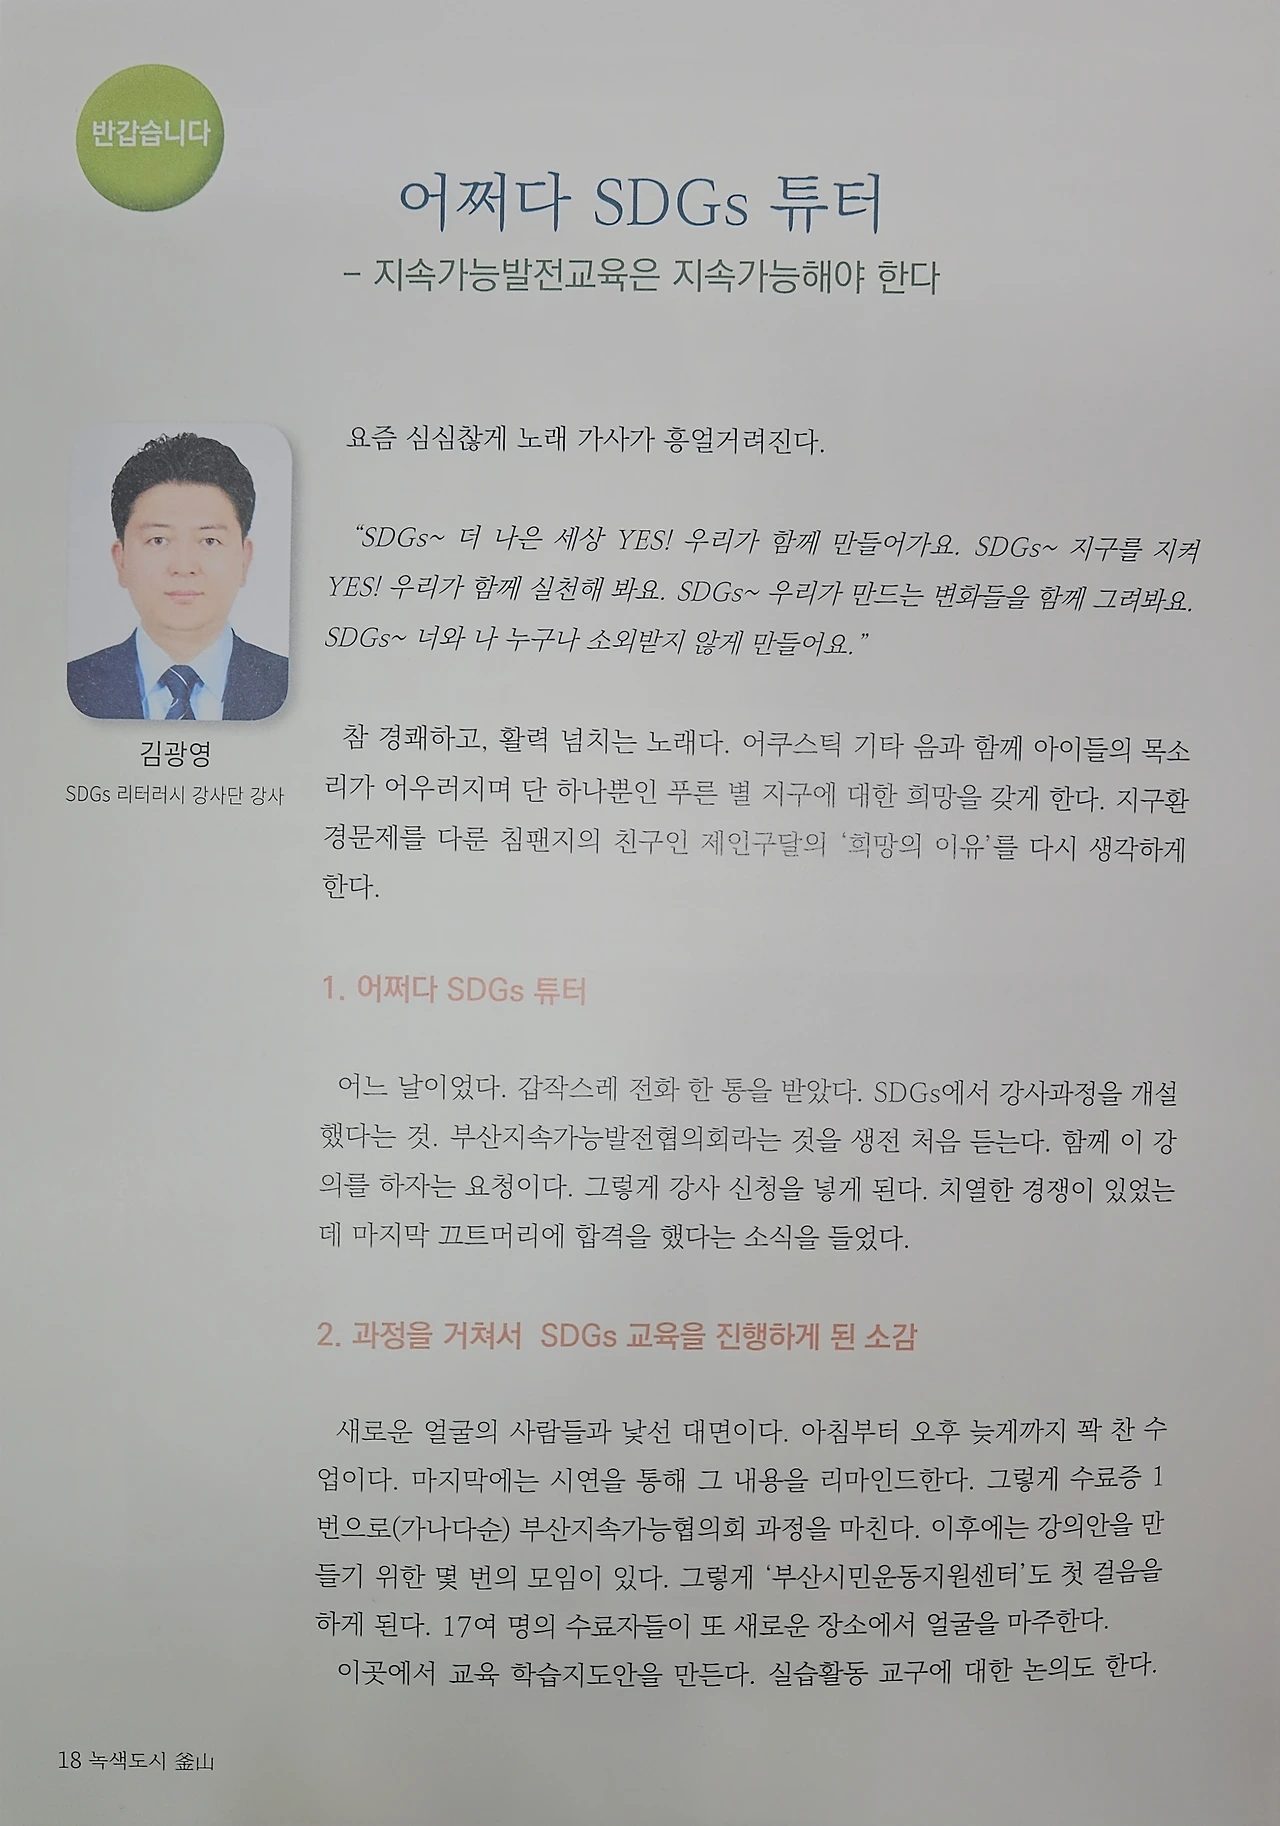 반갑습니다
어쩌다 SDGs 튜터
- 지속가능발전교육은 지속가능해야 한다
김광영
SDGs 리터러시 강사단 강사
요즘 심심찮게 노래 가사가 흥얼거려진다.
“SDGs~ 더 나은 세상 YES! 우리가 함께 만들어가요. SDGs~ 지구를 지켜
YES! 우리가 함께 실천해 봐요. SDGs~ 우리가 만드는 변화들을 함께 그려봐요.
SDGs~ 너와 나 누구나 소외받지 않게 만들어요.”
참 경쾌하고, 활력 넘치는 노래다. 어쿠스틱 기타 음과 함께 아이들의 목소
리가 어우러지며 단 하나뿐인 푸른 별 지구에 대한 희망을 갖게 한다. 지구환
경문제를 다룬 침팬지의 친구인 제인구달의 ‘희망의 이유’를 다시 생각하게
한다.
1. 어쩌다 SDGs 튜터
어느 날이었다. 갑작스레 전화 한 통을 받았다. SDGs에서 강사과정을 개설
했다는 것. 부산지속가능발전협의회라는 것을 생전 처음 듣는다. 함께 이 강
의를 하자는 요청이다. 그렇게 강사 신청을 넣게 된다. 치열한 경쟁이 있었는
데 마지막 끄트머리에 합격을 했다는 소식을 들었다.
2. 과정을 거쳐서 SDGs 교육을 진행하게 된 소감
새로운 얼굴의 사람들과 낯선 대면이다. 아침부터 오후 늦게까지 꽉 찬 수
업이다. 마지막에는 시연을 통해 그 내용을 리마인드한다. 그렇게 수료증 1
번으로(가나다순) 부산지속가능협의회 과정을 마친다. 이후에는 강의안을 만
들기 위한 몇 번의 모임이 있다. 그렇게 ‘부산시민운동지원센터’도 첫 걸음을
하게 된다. 17여 명의 수료자들이 또 새로운 장소에서 얼굴을 마주한다.
이곳에서 교육 학습지도안을 만든다. 실습활동 교구에 대한 논의도 한다.
18 녹색도시 釜山